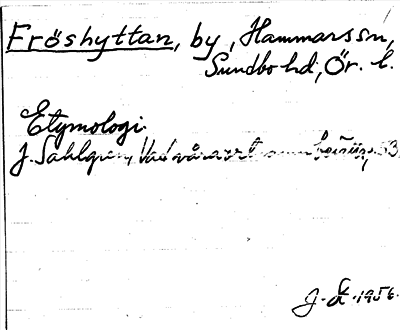 Fröshyttan, by, Hammars sn,
Sundbo hd, Ör. l.
Etymologi.
J. Sahlgren, Vad våra ortnamn berätta, 53
J. L. 1956.